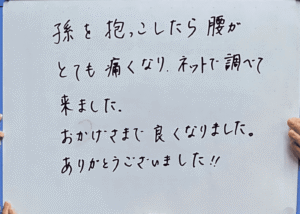 孫を抱っこしたら腰が
とても痛くなり、ネットで調べて
来ました.
おかげさまで良くなりました。
ありがとうございました!!